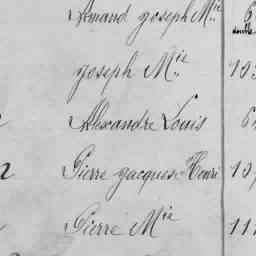 Amand joseph Mie 6
joseph Mie 10
Alexandre Louis 6
2 Pierre jacques Henri 10
Pierre Mie 11